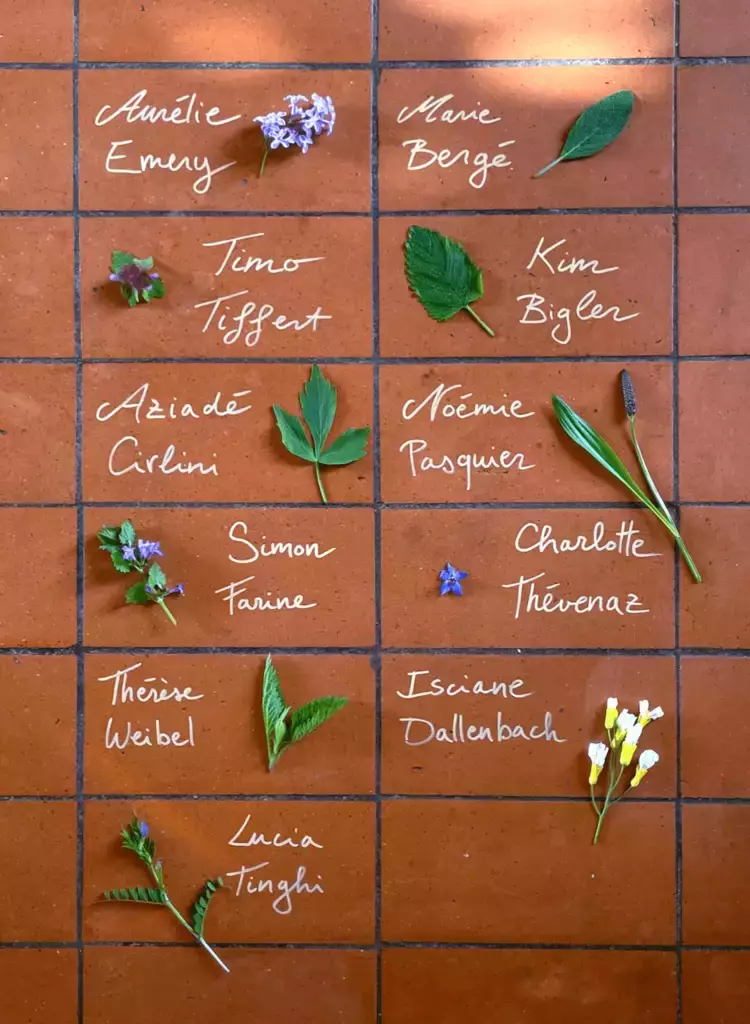 Aurélie
Emery
Marie
Bergé
Timo
Tiffert
Kim
Bigler
Aziadé
Cirlini
Noémie
Pasquier
Simon
Farine
Charlotte
Thévenaz
Thérèse
Weibel
Isciane
Dallenbach
Lucia
Tinghi